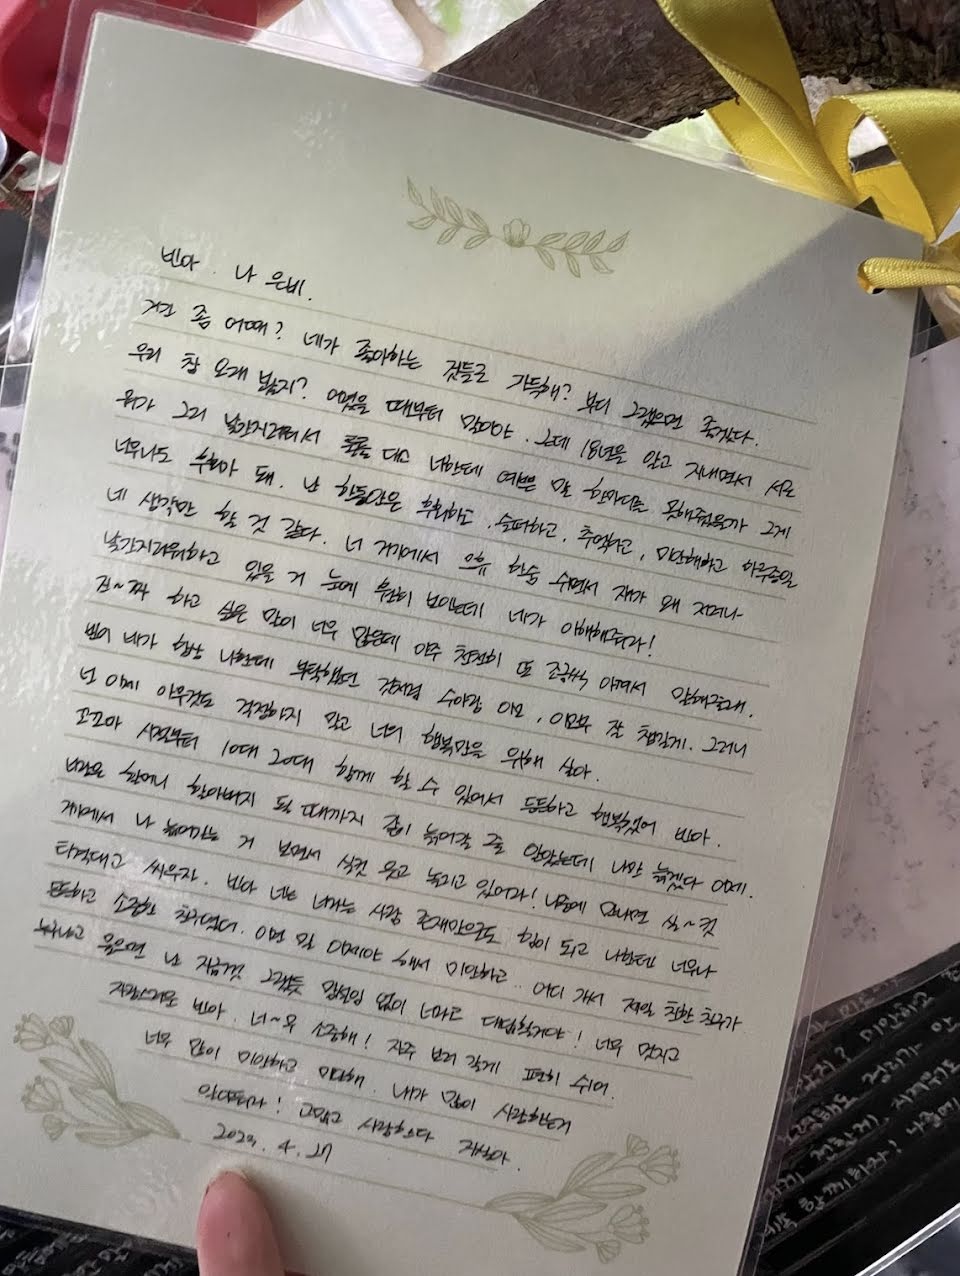 빈아. 나 은비.
거긴 좀 어때? 네가 좋아하는 것들로 가득해? 부디 그랬으면 좋겠다.
우리 참 오래 봤지? 어렸을 때부터 말이야. 근데 18년을 알고 지내면서 서로
뭐가 그리 낯간지러워서 툴툴 대고 너한테 예쁜 말 한마디를 못해줬을까 그게
너무나도 후회가 돼. 난 한동안은 후회하고, 슬퍼하고, 추억하고, 미안해하고 하루종일
네 생각만 할 것 같다. 너 거기에서 으휴 한숨 쉬면서 쟤가 왜 저러나
낯간지러워하고 있을 거 눈에 훤히 보이는데 네가 이해해주라!
진~짜 하고 싶은 말이 너무 많은데 아주 천천히 또 조금씩 아껴서 말해줄래.
빈이 네가 항상 나한테 부탁했던 것처럼 수아랑 이모, 이모부 잘 챙길게. 그러니
넌 이제 아무것도 걱정하지 말고 너의 행복만을 위해 살아.
꼬꼬마 시절부터 10대 20대 함께 할 수 있어서 든든하고 행복했어 빈아.
너랑은 할머니 할아버지 될 때까지 같이 늙어갈 줄 알았는데 나만 늙겠다 이제.
거기에서 나 늙어가는 거 보면서 실컷 웃고 놀리고 있어라! 나중에 만나면 실~컷
티격대고 싸우자. 빈아 너는 너라는 사람 존재만으로도 힘이 되고 나한테 너무나
든든하고 소중한 친구였다. 이런 말 이제야 해서 미안하고.. 어디 가서 제일 친한 친구가
누구냐고 물으면 난 지금껏 그랬듯 망설임 없이 너라고 대답할거야! 너무 멋지고
자랑스러운 빈아. 너~무 소중해! 자주 보러 갈게 편히 쉬어.
너무 많이 미안하고 미안해. 내가 많이 사랑하는거
알아줘라! 고맙고 사랑한다 자식아.
4. 27